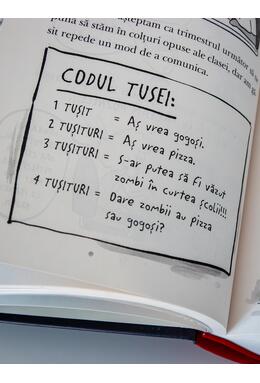 așteptam ca trimestrul următor să
pună să stăm în colțuri opuse ale clasei, dar am
sit repede un mod de a comunica.
CODUL TUSEI:
1 TUȘIT = Aș vrea gogoși.
2 TUȘITURI = Aș vrea pizza.
3 TUȘITURI = S-ar putea să fi văzut
zombi în curtea școlii!!!
4 TUȘITURI = Dare zombii au pizza
sau gogoși?